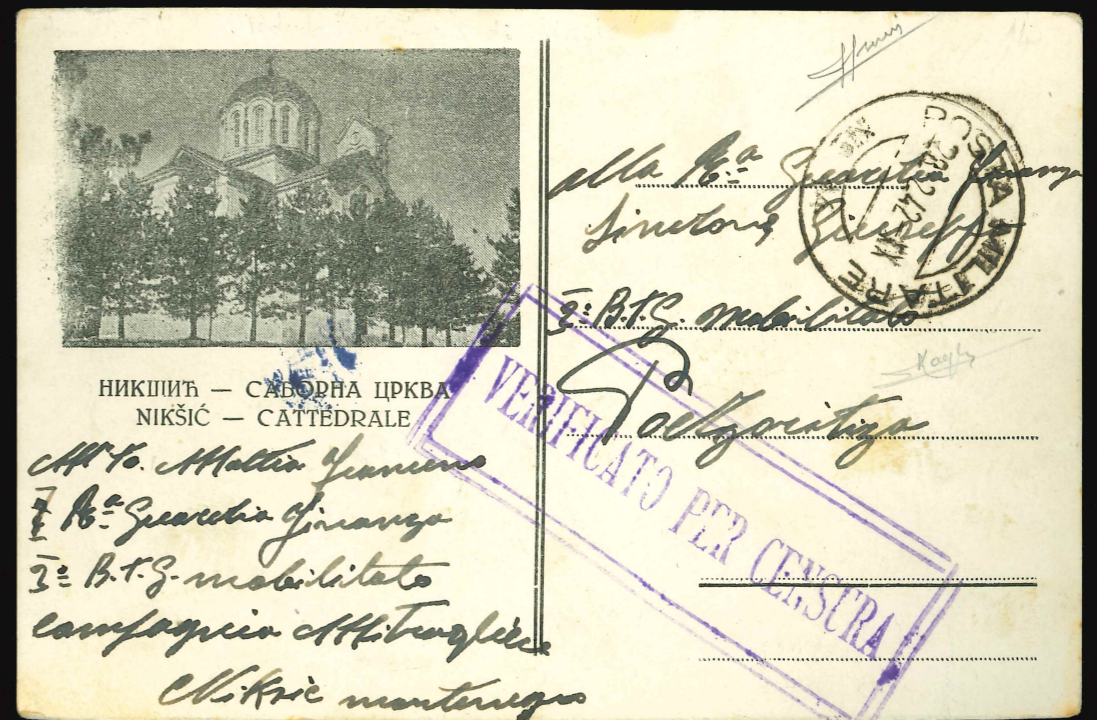 НИКШИЋ — САБОРНА ЦРКВА
NIKŠIĆ — CATTEDRALE
Mattia
Rª Guardia Finanza
I° B.T.G. mobilitato
compagnia Mitraglieri
Nikšic montenegro
POSTA MILITARE
28.2.42 XX
alla Rª Guardia Finanza
Giuseppe
I° B.T.G. mobilitato
Podgoritza
VERIFICATO PER CENSURA